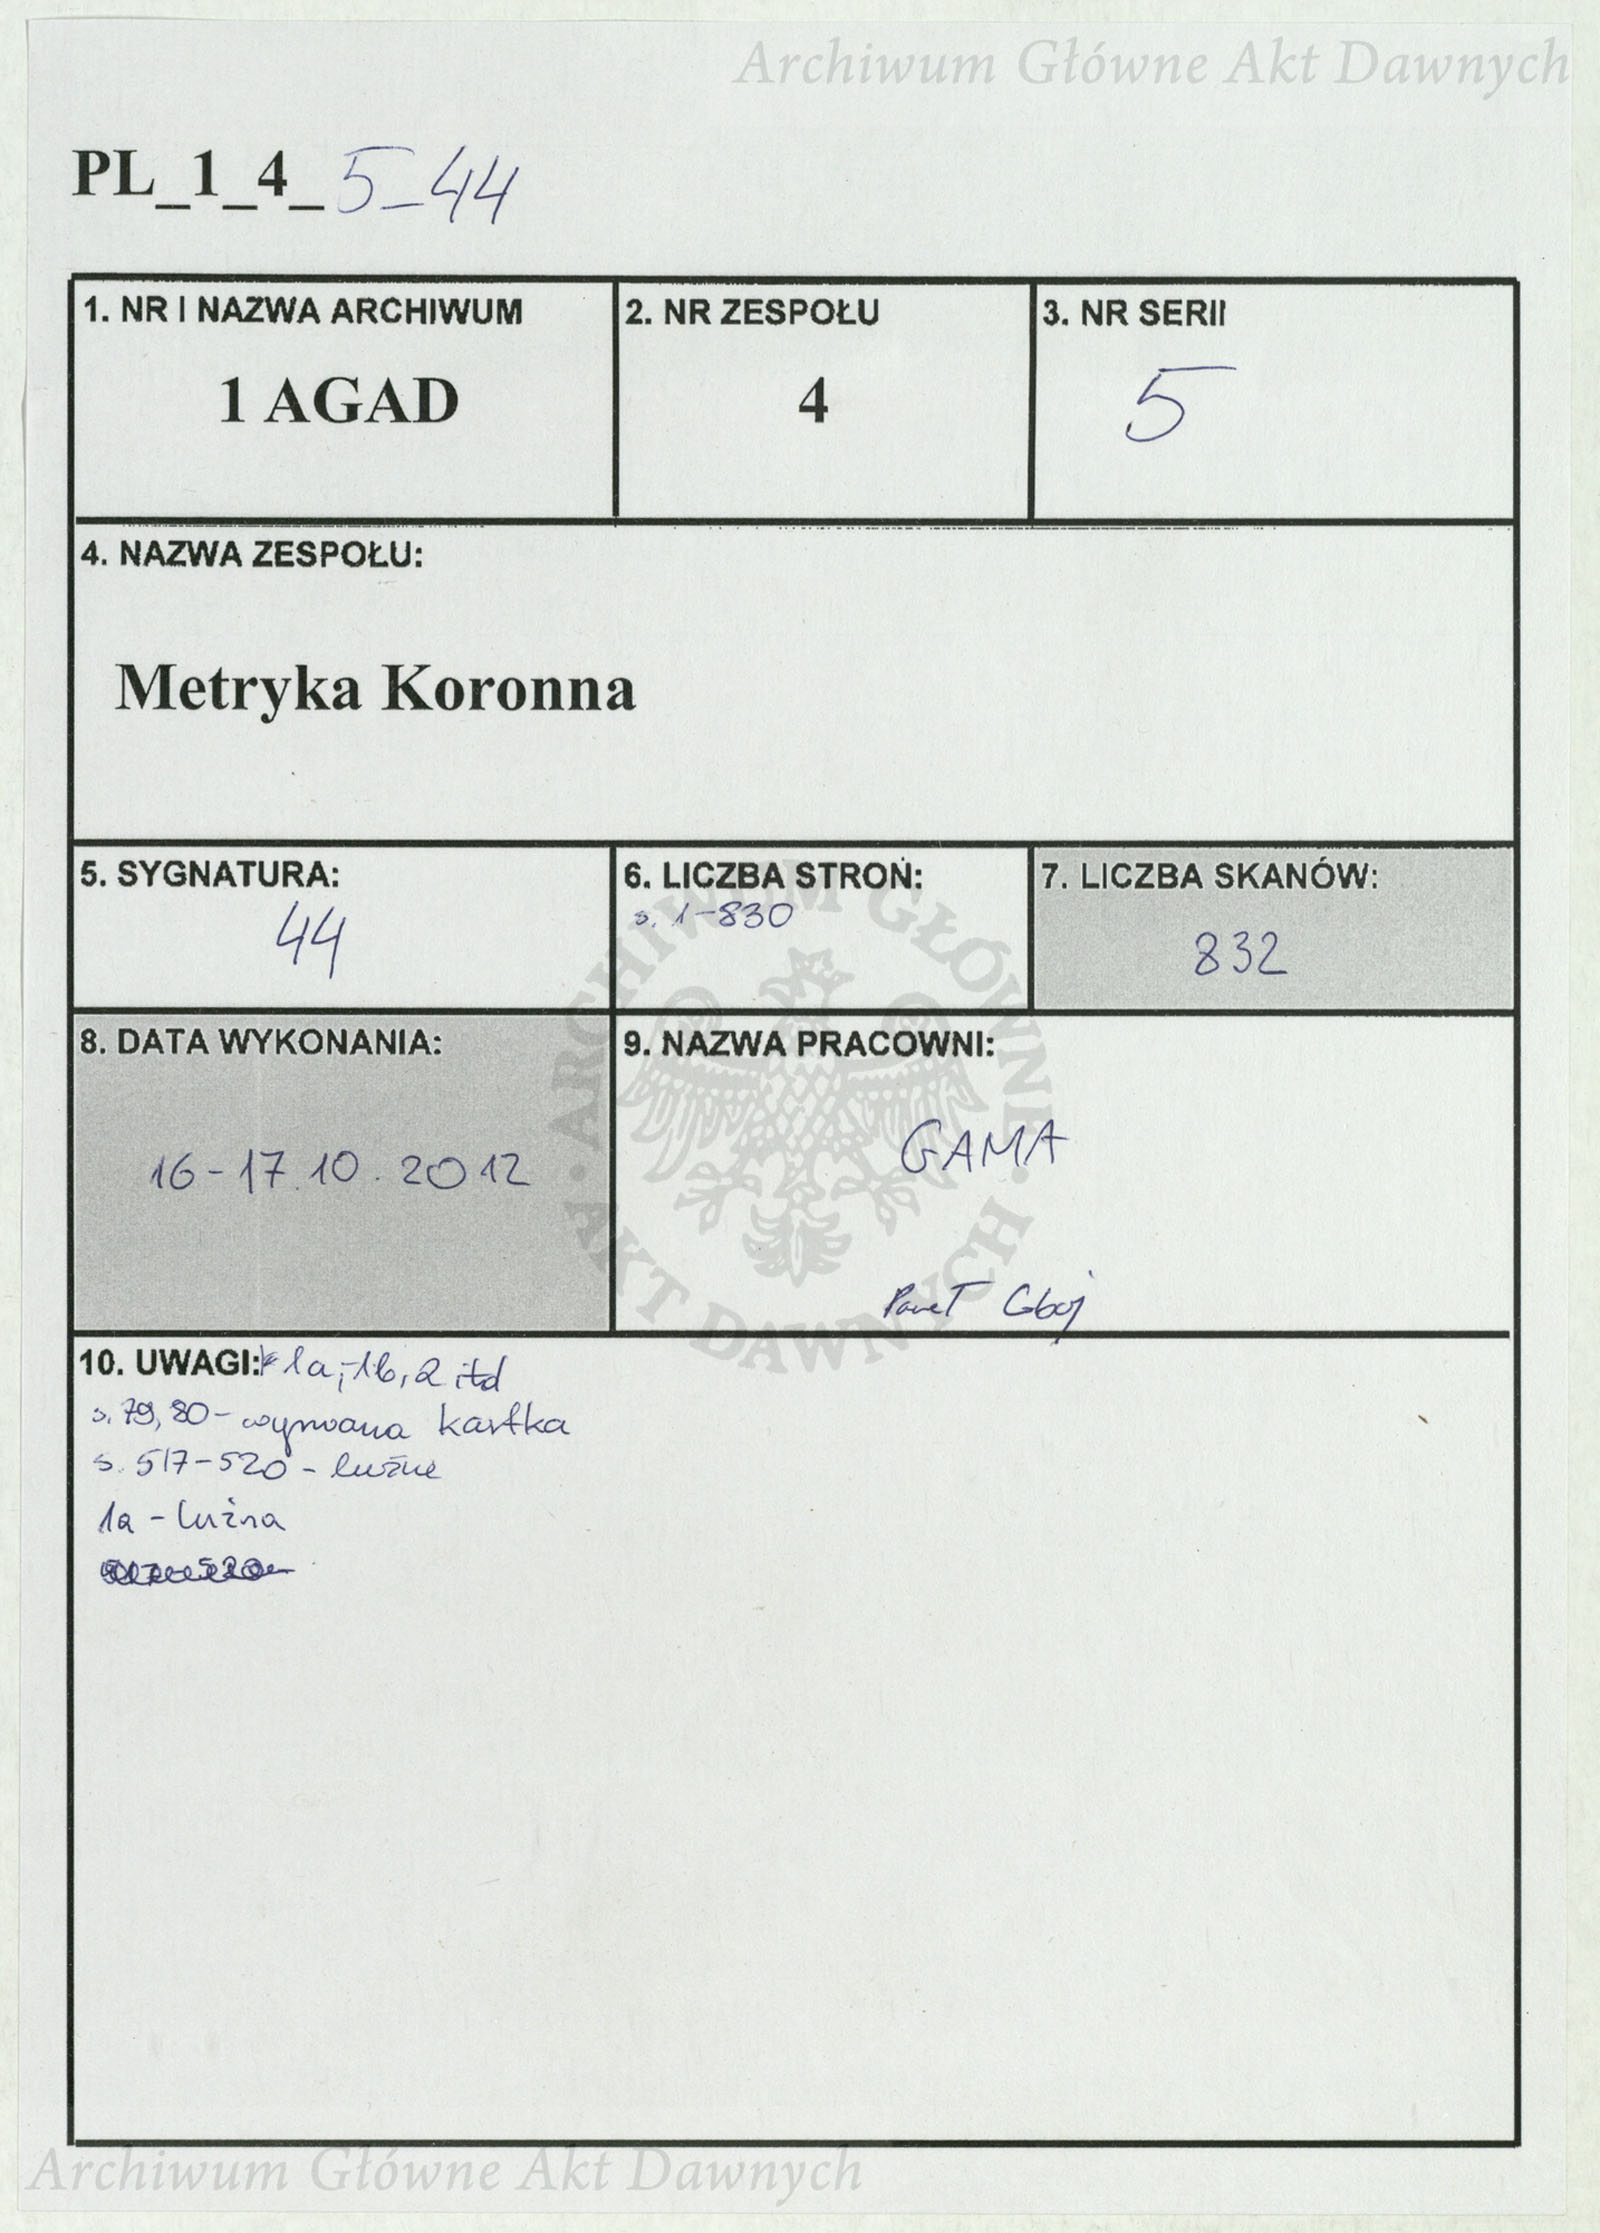 Archiwum Główne Akt Dawnych
PL_1_4_5_44
1. NR I NAZWA ARCHIWUM
1 AGAD
2. NR ZESPOŁU
4
3. NR SERII
5
4. NAZWA ZESPOŁU:
Metryka Koronna
5. SYGNATURA:
44
6. LICZBA STRON:
s. 1-830
7. LICZBA SKANÓW:
832
8. DATA WYKONANIA:
16-17.10.2012
9. NAZWA PRACOWNI:
GAMA
Paweł
10. UWAGI: 1a, 1b, 2 itd
s. 79, 80 - wyrwana kartka
s. 517-520 - luźne
1a - luźna
ARCHIWUM GŁÓWNE · AKT DAWNYCH ·
Archiwum Główne Akt Dawnych